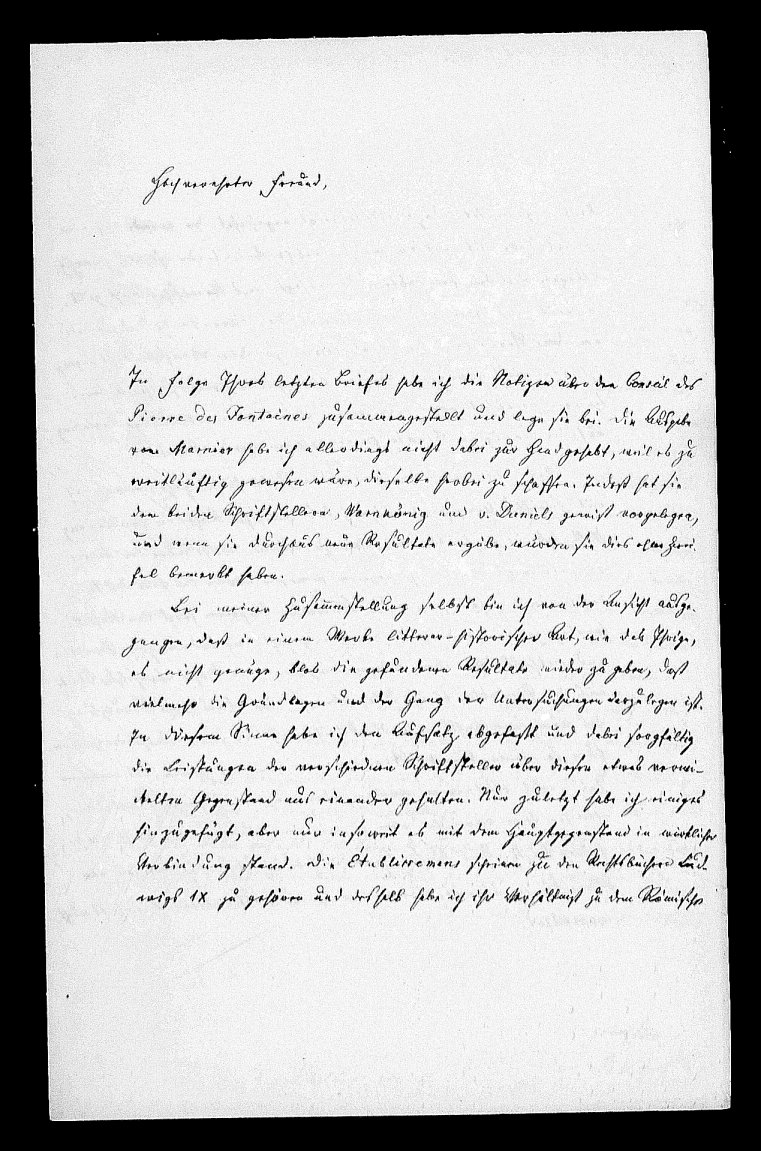 Hochverehrter Freund,
In Folge Ihres letzten Briefes habe ich die Notizen über den Conseil des
Pierre des Fontaines zusammengestellt und lege sie bei. Die Ausgabe
von Marnier habe ich allerdings nicht dabei zur Hand gehabt, weil es zu
weitläuftig gewesen wäre, dieselbe herbei zu schaffen. Indeß hat sie
den beiden Schriftstellern, Warnkönig und v. Daniels gewiß vorgelegen,
und wenn sie durchaus neue Resultate ergäbe, würden sie dies ohne Zwei-
fel bemerkt haben.
Bei meiner Zusammenstellung selbst bin ich von der Ansicht ausge-
gangen, daß in einem Werke litterar-historischer Art, wie das Ihrige,
es nicht genüge, blos die gefundenen Resultate wieder zu geben, daß
vielmehr die Grundlagen und der Gang der Untersuchungen darzulegen ist.
In diesem Sinne habe ich den Aufsatz abgefaßt und dabei sorgfältig
die Leistungen der verschiednen Schriftsteller über diesen etwas verwi-
kelten Gegenstand aus einander gehalten. Nur zuletzt habe ich einiges
hinzugefügt, aber nur insoweit es mit dem Hauptgegenstand in wirklicher
Verbindung stand. Die Établissemens scheinen zu den Rechtsbüchern Lud-
wigs IX zu gehören und deshalb habe ich ihr Verhältniß zu dem Römischen